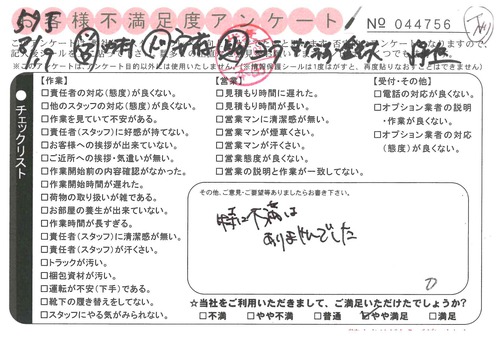 お客様不満足度アンケート
No 044756
【作業】
□責任者の対応(態度)が良くない。
□他のスタッフの対応(態度)が良くない。
□作業を見ていて不安がある。
□責任者(スタッフ)に好感が持てない。
□お客様への挨拶が出来ていない。
□ご近所への挨拶・気遣いが無い。
□作業開始前の内容確認がなかった。
□作業開始時間が遅れた。
□荷物の取り扱いが雑である。
□お部屋の養生が出来ていない。
□作業時間が長すぎる。
□責任者(スタッフ)に清潔感が無い。
□責任者(スタッフ)が汗くさい。
□トラックが汚い。
□梱包資材が汚い。
□運転が不安(下手)である。
□靴下の履き替えをしてない。
□スタッフにやる気がみられない。
【営業】
□見積もり時間に遅れた。
□見積もり時間が長い。
□営業マンに清潔感が無い。
□営業マンが煙草くさい。
□営業マンが汗くさい。
□営業態度が良くない。
□営業の説明と作業が一致してない。
【受付・その他】
□電話の対応が良くない。
□オプション業者の説明
・作業が良くない。
□オプション業者の対応
(態度)が良くない。
チェックリスト
その他、ご意見・ご要望等ありましたらお書き下さい。
特に不満は
ありませんでした
☆当社をご利用いただきまして、ご満足いただけたでしょうか?
□不満 □やや不満 □普通 □やや満足 □満足